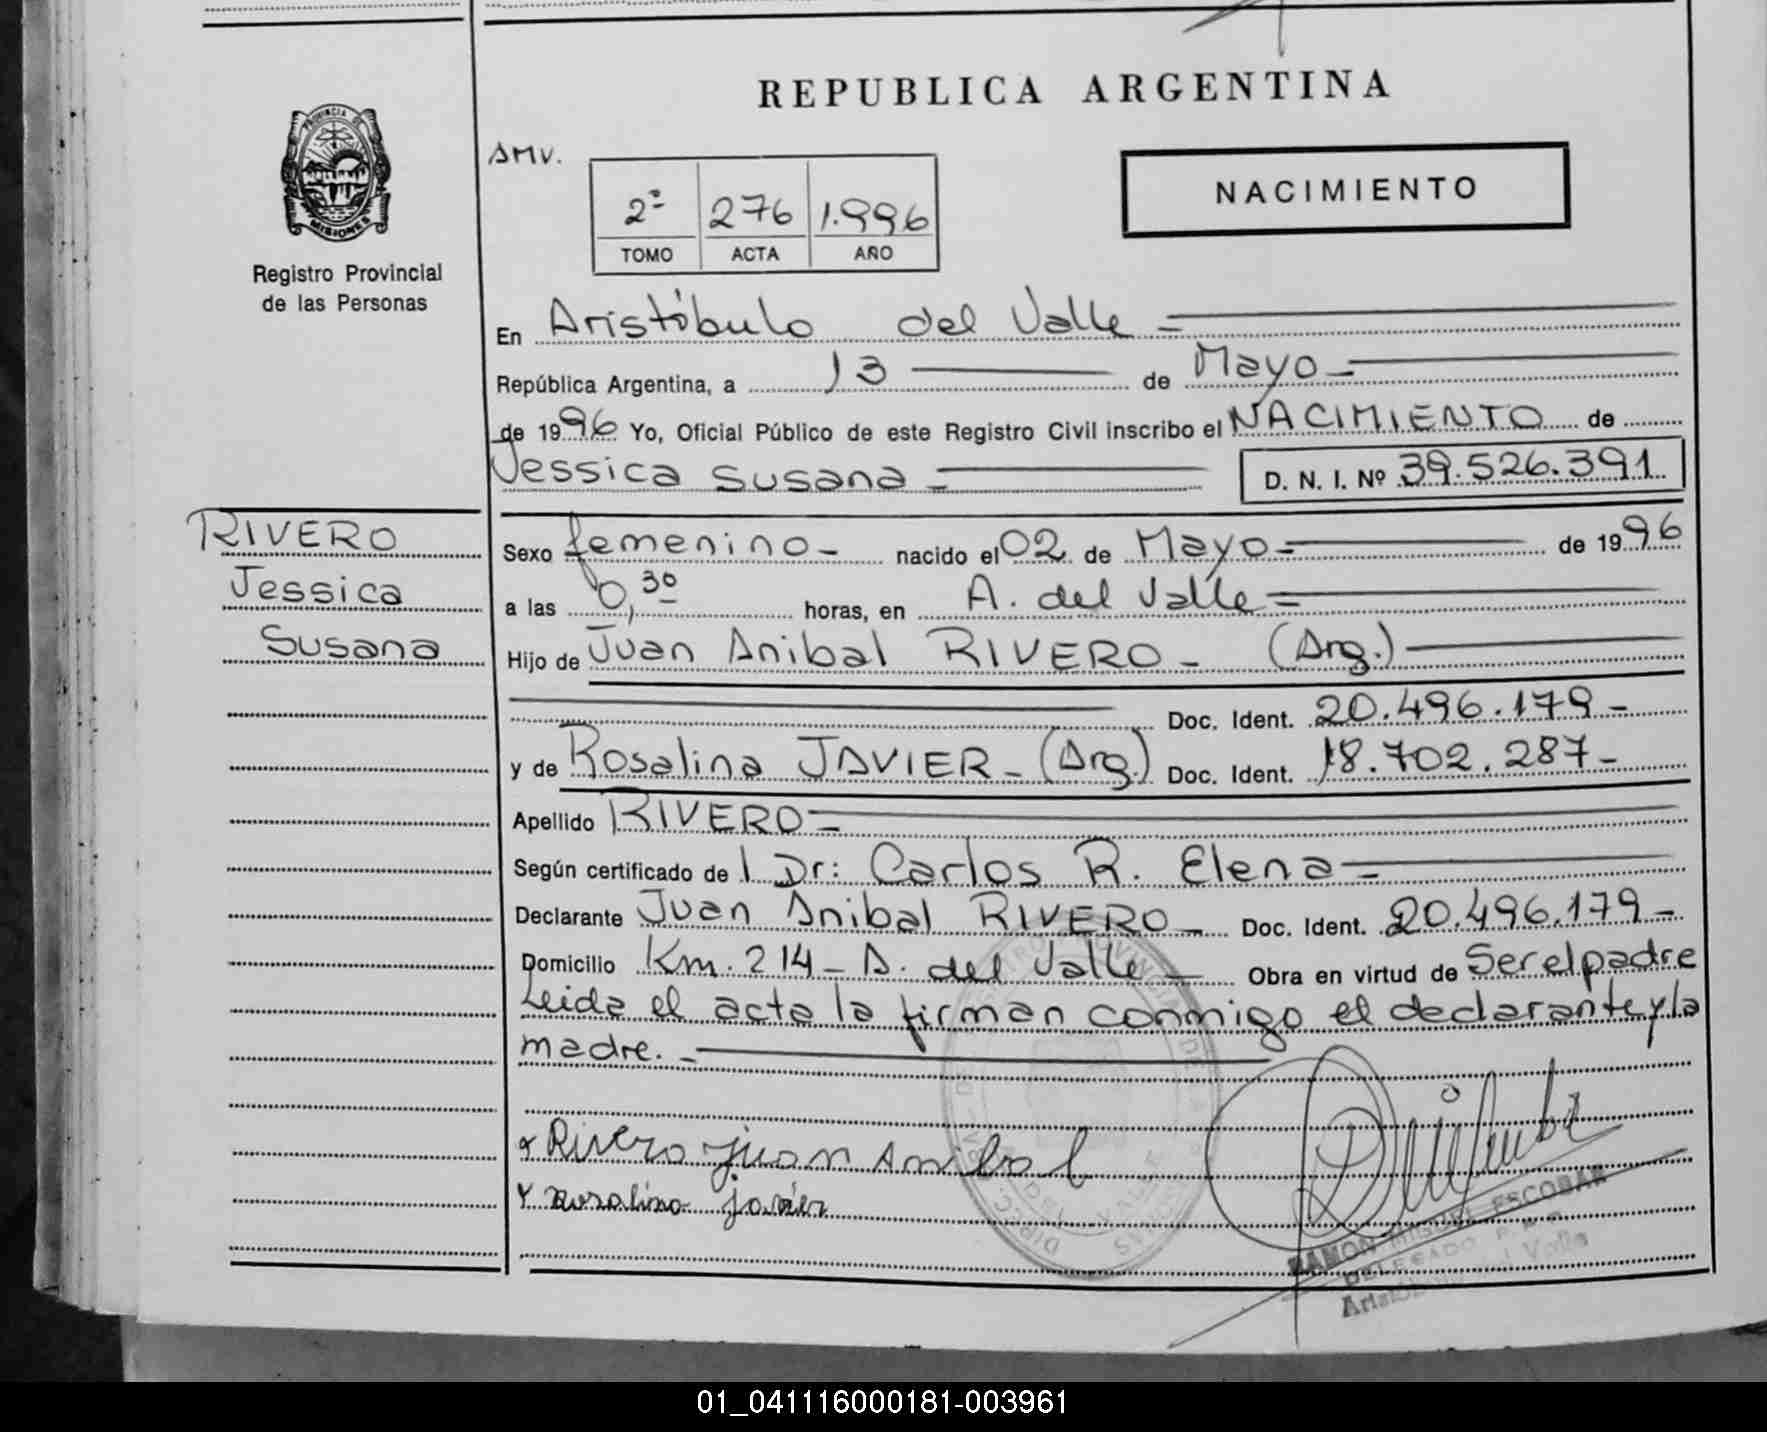 REPUBLICA ARGENTINA
PROVINCIA DE
MISIONES
Registro Provincial
de las Personas
AMV.
2º 276 1.996
TOMO ACTA AÑO
NACIMIENTO
En Aristóbulo del Valle
República Argentina, a 13 de Mayo
de 1996 Yo, Oficial Público de este Registro Civil inscribo el NACIMIENTO de
Jessica Susana D. N. I. Nº 39.526.391
RIVERO
Jessica
Susana
Sexo femenino nacido el 02 de Mayo de 1996
a las 0,30 horas, en A. del Valle
Hijo de Juan Anibal RIVERO (Arg.)
Doc. Ident. 20.496.179
y de Rosalina JAVIER (Arg.) Doc. Ident. 18.702.287
Apellido RIVERO
Según certificado de l Dr: Carlos R. Elena
Declarante Juan Anibal RIVERO Doc. Ident. 20.496.179
Domicilio Km. 214 - A. del Valle Obra en virtud de Ser el padre
Leida el acta la firman conmigo el declarante y la
madre.
Rivero juan Anibal
rosalina javier
RAMON MIGUEL ESCOBAR
DELEGADO
01_041116000181-003961